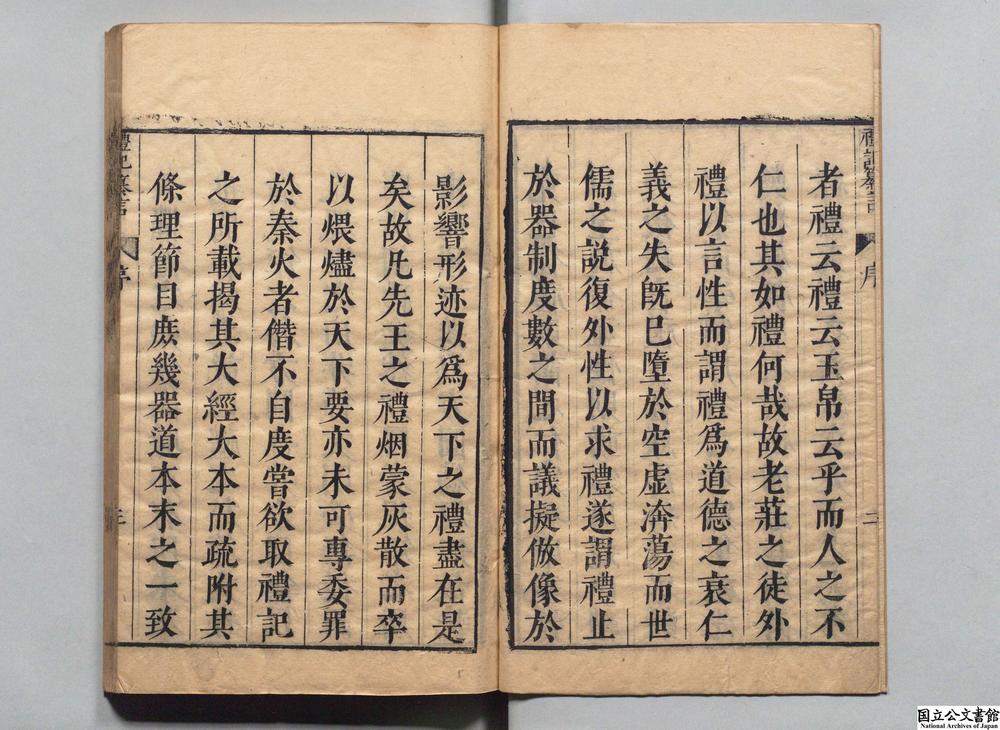 禮記纂言
序
二
者禮云禮云玉帛云乎而人之不
仁也其如禮何哉故老莊之徒外
禮以言性而謂禮爲道德之衰仁
義之失旣已墮於空虛渀蕩而世
儒之說復外性以求禮遂謂禮止
於器制度數之間而議擬倣像於
影響形迹以爲天下之禮盡在是
矣故凡先王之禮烟蒙灰散而卒
以煨燼於天下要亦未可專委罪
於秦火者僭不自度嘗欲取禮記
之所載揭其大經大本而疏附其
條理節目庶幾器道本末之一致
禮記纂言
序
三
国立公文書館
National Archives of Japan